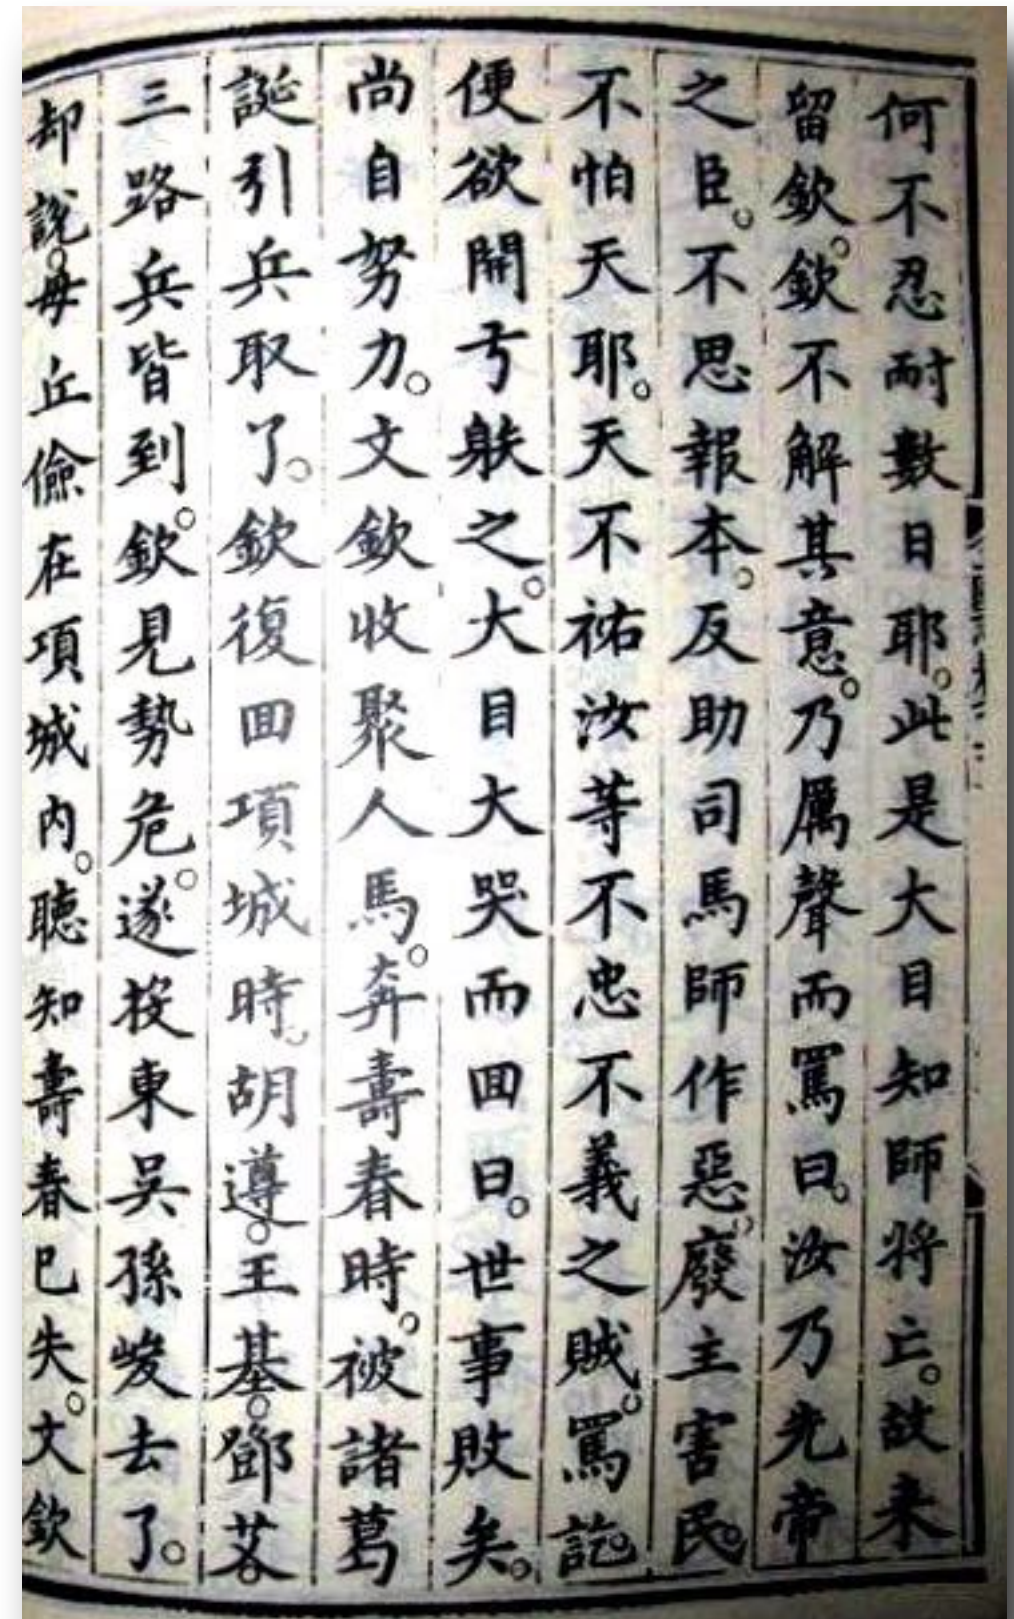 何不忍耐數日耶。此是大目知師将亡。故来
留欽。欽不解其意。乃厲聲而罵曰。汝乃先帝
之臣。不思報本。反助司馬師作惡。廢主害民。
不怕天耶。天不祐汝等不忠不義之賊。罵訖。
便欲開弓躲之。大目大哭而回曰。世事敗矣。
尚自努力。文欽收聚人馬。奔壽春時。被諸葛
誕引兵取了。欽復回項城時。胡遵。王基。鄧艾。
三路兵皆到。欽見勢危。遂投東吳孫峻去了。
却說。毋丘儉在項城内。聽知壽春已失。文欽